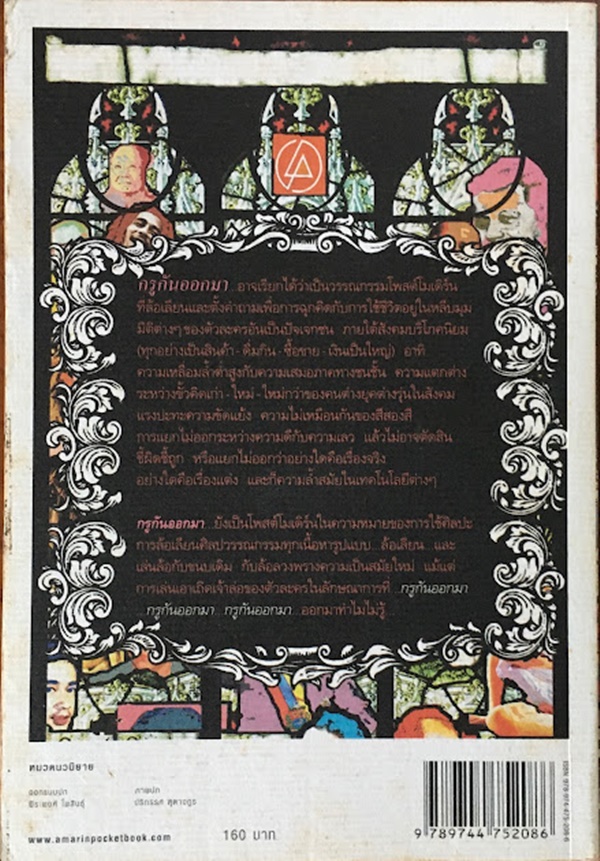 กรูกันออกมา...อาจเรียกได้ว่าเป็นวรรณกรรมโพสต์โมเดิร์น
ที่ล้อเลียนและตั้งคำถามเพื่อการฉุกคิดกับการใช้ชีวิตอยู่ในหลืบมุม
มิติต่างๆ ของตัวละครอันเป็นปัจเจกชน ภายใต้สังคมบริโภคนิยม
(ทุกอย่างเป็นสินค้า - ดื่มกิน - ซื้อขาย - เงินเป็นใหญ่) อาทิ
ความเหลื่อมล้ำต่ำสูงกับความเสมอภาคทางชนชั้น ความแตกต่าง
ระหว่างขั้วคิดเก่า - ใหม่ - ใหม่กว่าของคนต่างยุคต่างรุ่นในสังคม
แรงปะทะความขัดแย้ง ความไม่เหมือนกันของสีสองสี
การแยกไม่ออกระหว่างความดีกับความเลว แล้วไม่อาจตัดสิน
ชี้ผิดชี้ถูก หรือแยกไม่ออกว่าอย่างใดคือเรื่องจริง
อย่างใดคือเรื่องแต่ง และก็ความล้ำสมัยในเทคโนโลยีต่างๆ
กรูกันออกมา...ยังเป็นโพสต์โมเดิร์นในความหมายของการใช้ศิลปะ
การล้อเลียนศิลปวรรณกรรมทุกเนื้อหารูปแบบ...ล้อเลียน...และ
เล่นล้อกับขนบเดิม กับล้อลวงพรางความเป็นสมัยใหม่ แม้แต่
การเล่นเอาเถิดเจ้าล่อของตัวละครในลักษณาการที่ ...กรูกันออกมา
...กรูกันออกมา...กรูกันออกมา...ออกมาทำไมไม่รู้...
หมวดนวนิยาย
ออกแบบปก
ภาพปก
พีระพงศ์ โพสินธุ์
www.amarinpocketbook.com
160 บาท
ISBN 978-974-475-208-6
9 789744 752086